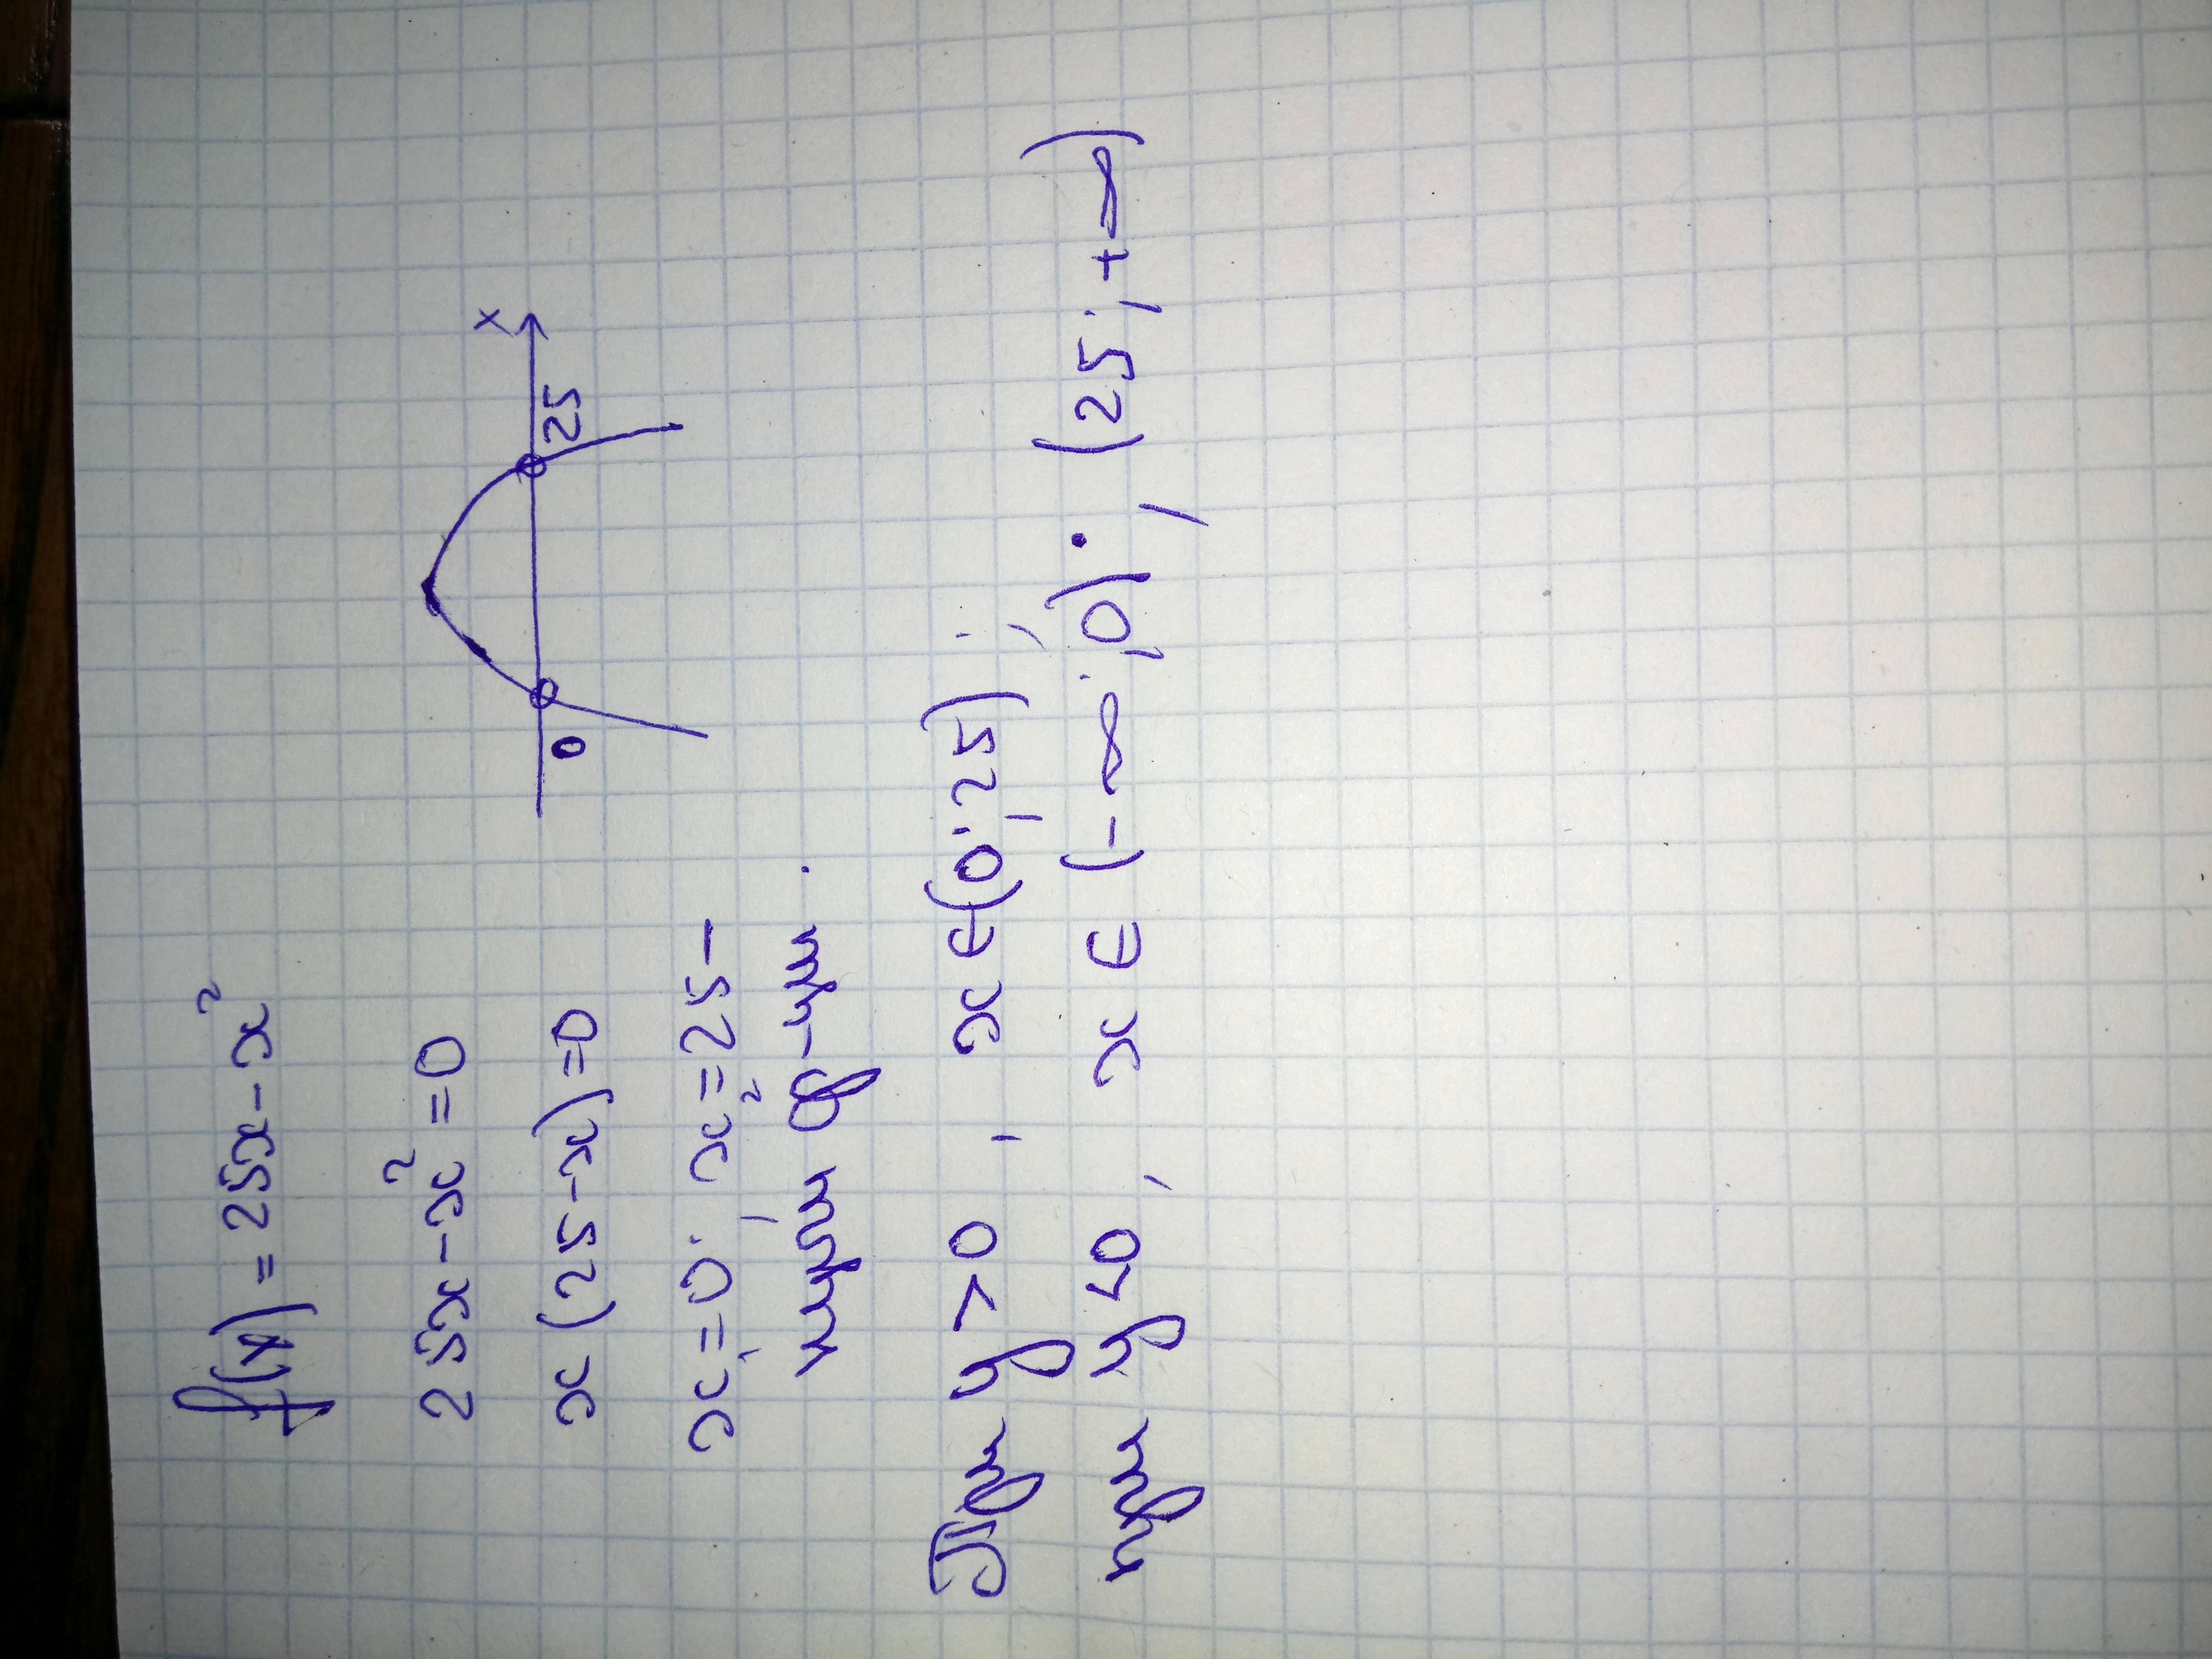 f(x) = 25x - x²
25x - x² = 0
x (25 - x) = 0
x₁ = 0; x₂ = 25 -
нули ф-ции.
x
0
25
При y > 0, x ∈ (0; 25);
при y < 0, x ∈ (-∞; 0); (25; +∞)